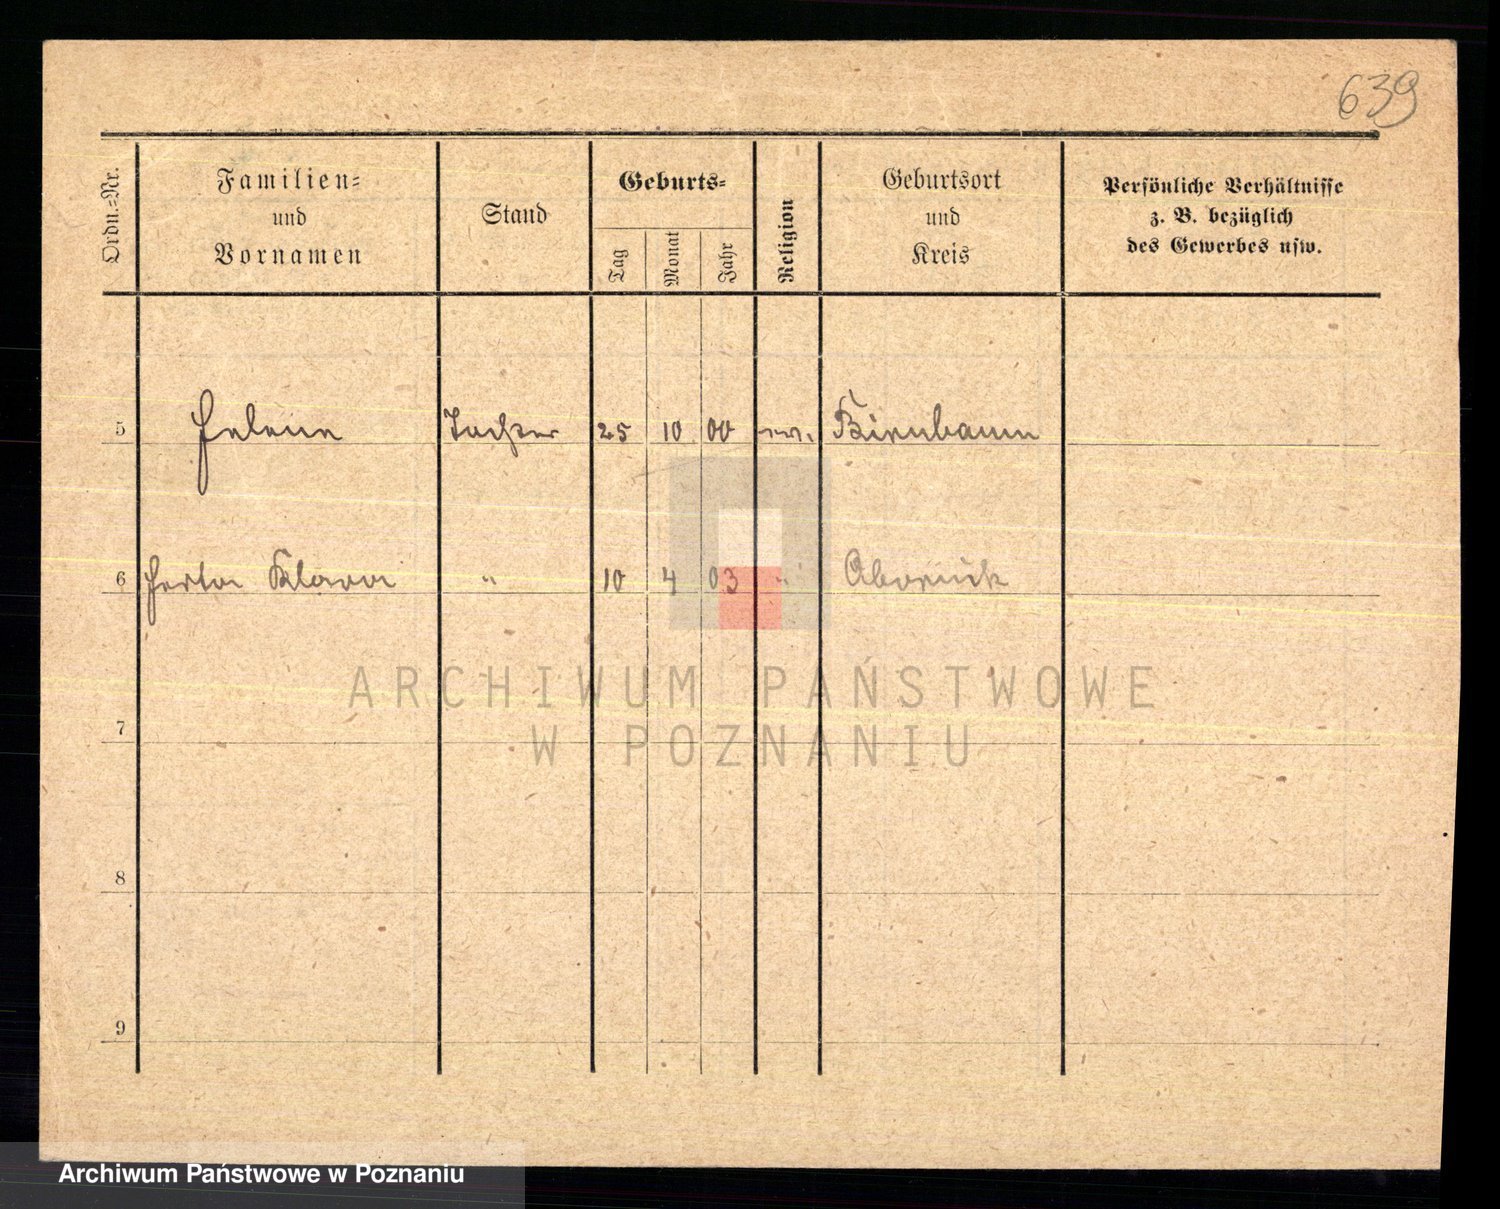 639
Ordn.-Nr.
Familien-
und
Vornamen
Stand
Geburts-
Tag
Monat
Jahr
Religion
Geburtsort
und
Kreis
Persönliche Verhältnisse
z. B. bezüglich
des Gewerbes usw.
5 Helene Tochter 25 10 00 Birnbaum
6 Herta Klara " 10 4 03 "
7
8
9
ARCHIWUM PAŃSTWOWE
W POZNANIU
Archiwum Państwowe w Poznaniu